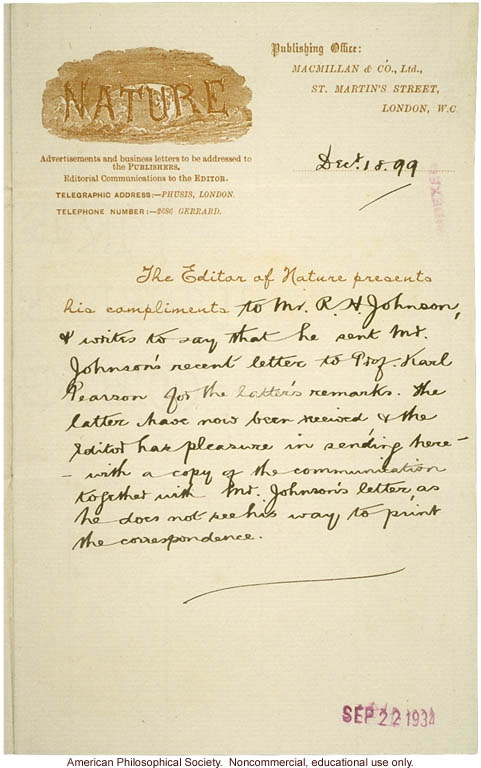 NATURE
Publishing Office:
MACMILLAN & CO., Ltd.,
ST. MARTIN'S STREET,
LONDON, W.C
Advertisements and business letters to be addressed to
the PUBLISHERS.
Editorial Communications to the EDITOR.
TELEGRAPHIC ADDRESS:—PHUSIS, LONDON.
TELEPHONE NUMBER:—2686 GERRARD.
Dec. 18. 99
The Editor of Nature presents
his compliments to Mr. R. H. Johnson,
& writes to say that he sent Mr.
Johnson's recent letter to Prof. Karl
Pearson for the latter's remarks. The
latter have now been received & the
Editor has pleasure in sending here-
- with a copy of the communication
together with Mr. Johnson's letter, as
he does not see his way to print
the correspondence.
SEP 22 1934
American Philosophical Society. Noncommercial, educational use only.